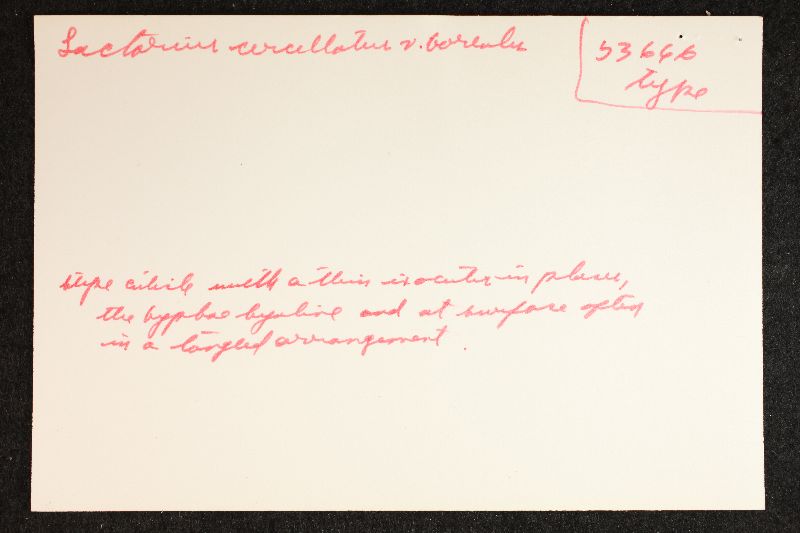 Lactarius circellatus v. borealis
53666
type
stipe cuticle with a thin ixocutis in places,
the hyphae hyaline and at surface often
in a tangled arrangement.